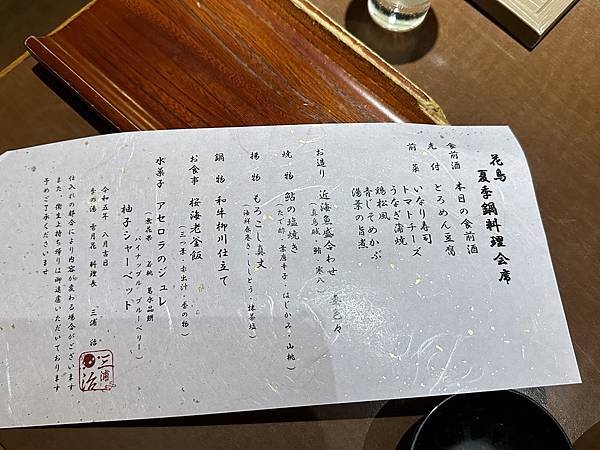 花鳥
夏季鍋料理会席
食前酒 本日の食前酒
先付 とろめん豆腐
前菜 いなり寿司
トマトチーズ
うなぎ蒲焼
鶏松風
青じそめかぶ
湯葉の旨煮
お造り 近海魚盛合わせ 妻色々
(真鳥賊・鮪・寒八)
焼物 鮎の塩焼き
(たで酢・葉唐辛子・はじかみ・山桃)
揚物 もろこし真丈
(海鮮春巻き・ししとう・抹茶塩)
鍋物 和牛柳川仕立て
お食事 桜海老釜飯
(三つ葉・赤出汁・香の物)
水菓子 アセロラのジュレ
(無花果 若桃 葛水晶網 パイナップル・ブルーベリー)
柚子シャーベット
令和五年 八月吉日
季の湯 雪月花 料理長 三浦 浩
三浦
浩
仕入れの都合により内容が変わる場合がございます
また、衛生上お持ち帰りは御遠慮いただいております
予めご了承くださいませ